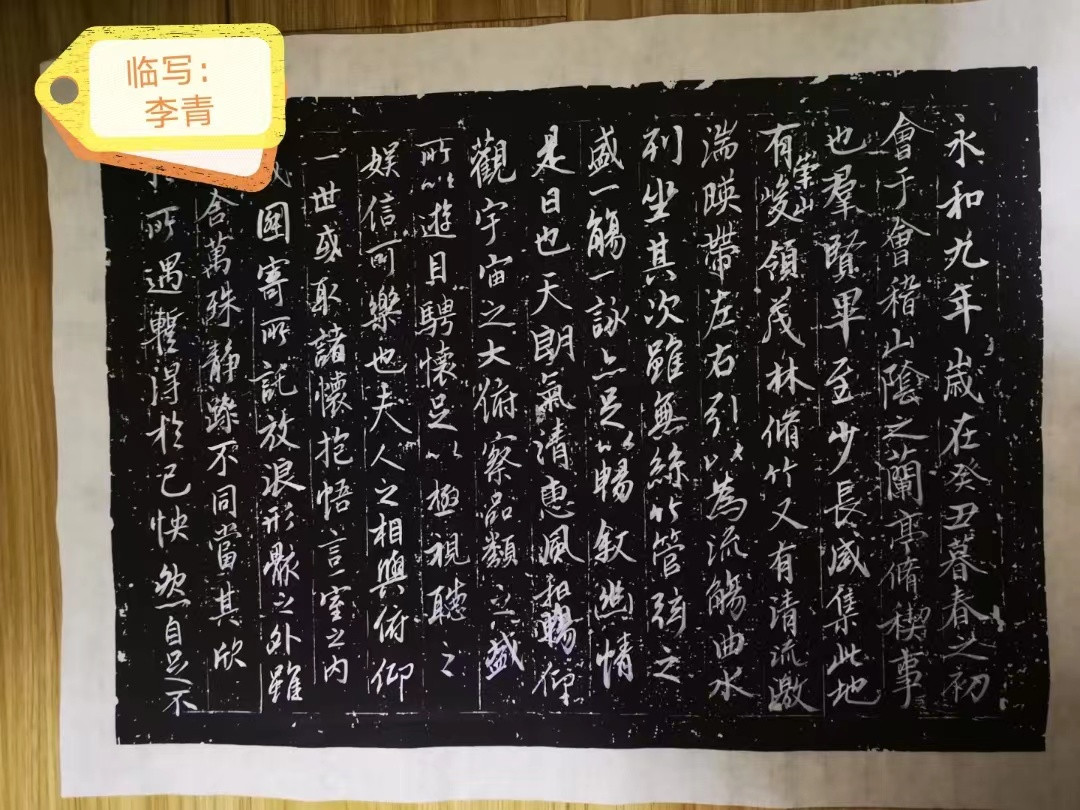 临写：
李青
永和九年歲在癸丑暮春之初
會于會稽山陰之蘭亭脩稧事
也羣賢畢至少長咸集此地
有崇山峻領茂林脩竹又有清流激
湍暎帶左右引以為流觴曲水
列坐其次雖無絲竹管弦之
盛一觴一詠亦足以暢敘幽情
是日也天朗氣清惠風和暢仰
觀宇宙之大俯察品類之盛
所以遊目騁懷足以極視聽之
娛信可樂也夫人之相與俯仰
一世或取諸懷抱悟言一室之內
因寄所託放浪形骸之外雖
舍萬殊靜躁不同當其欣
所遇暫得於己怏然自足不